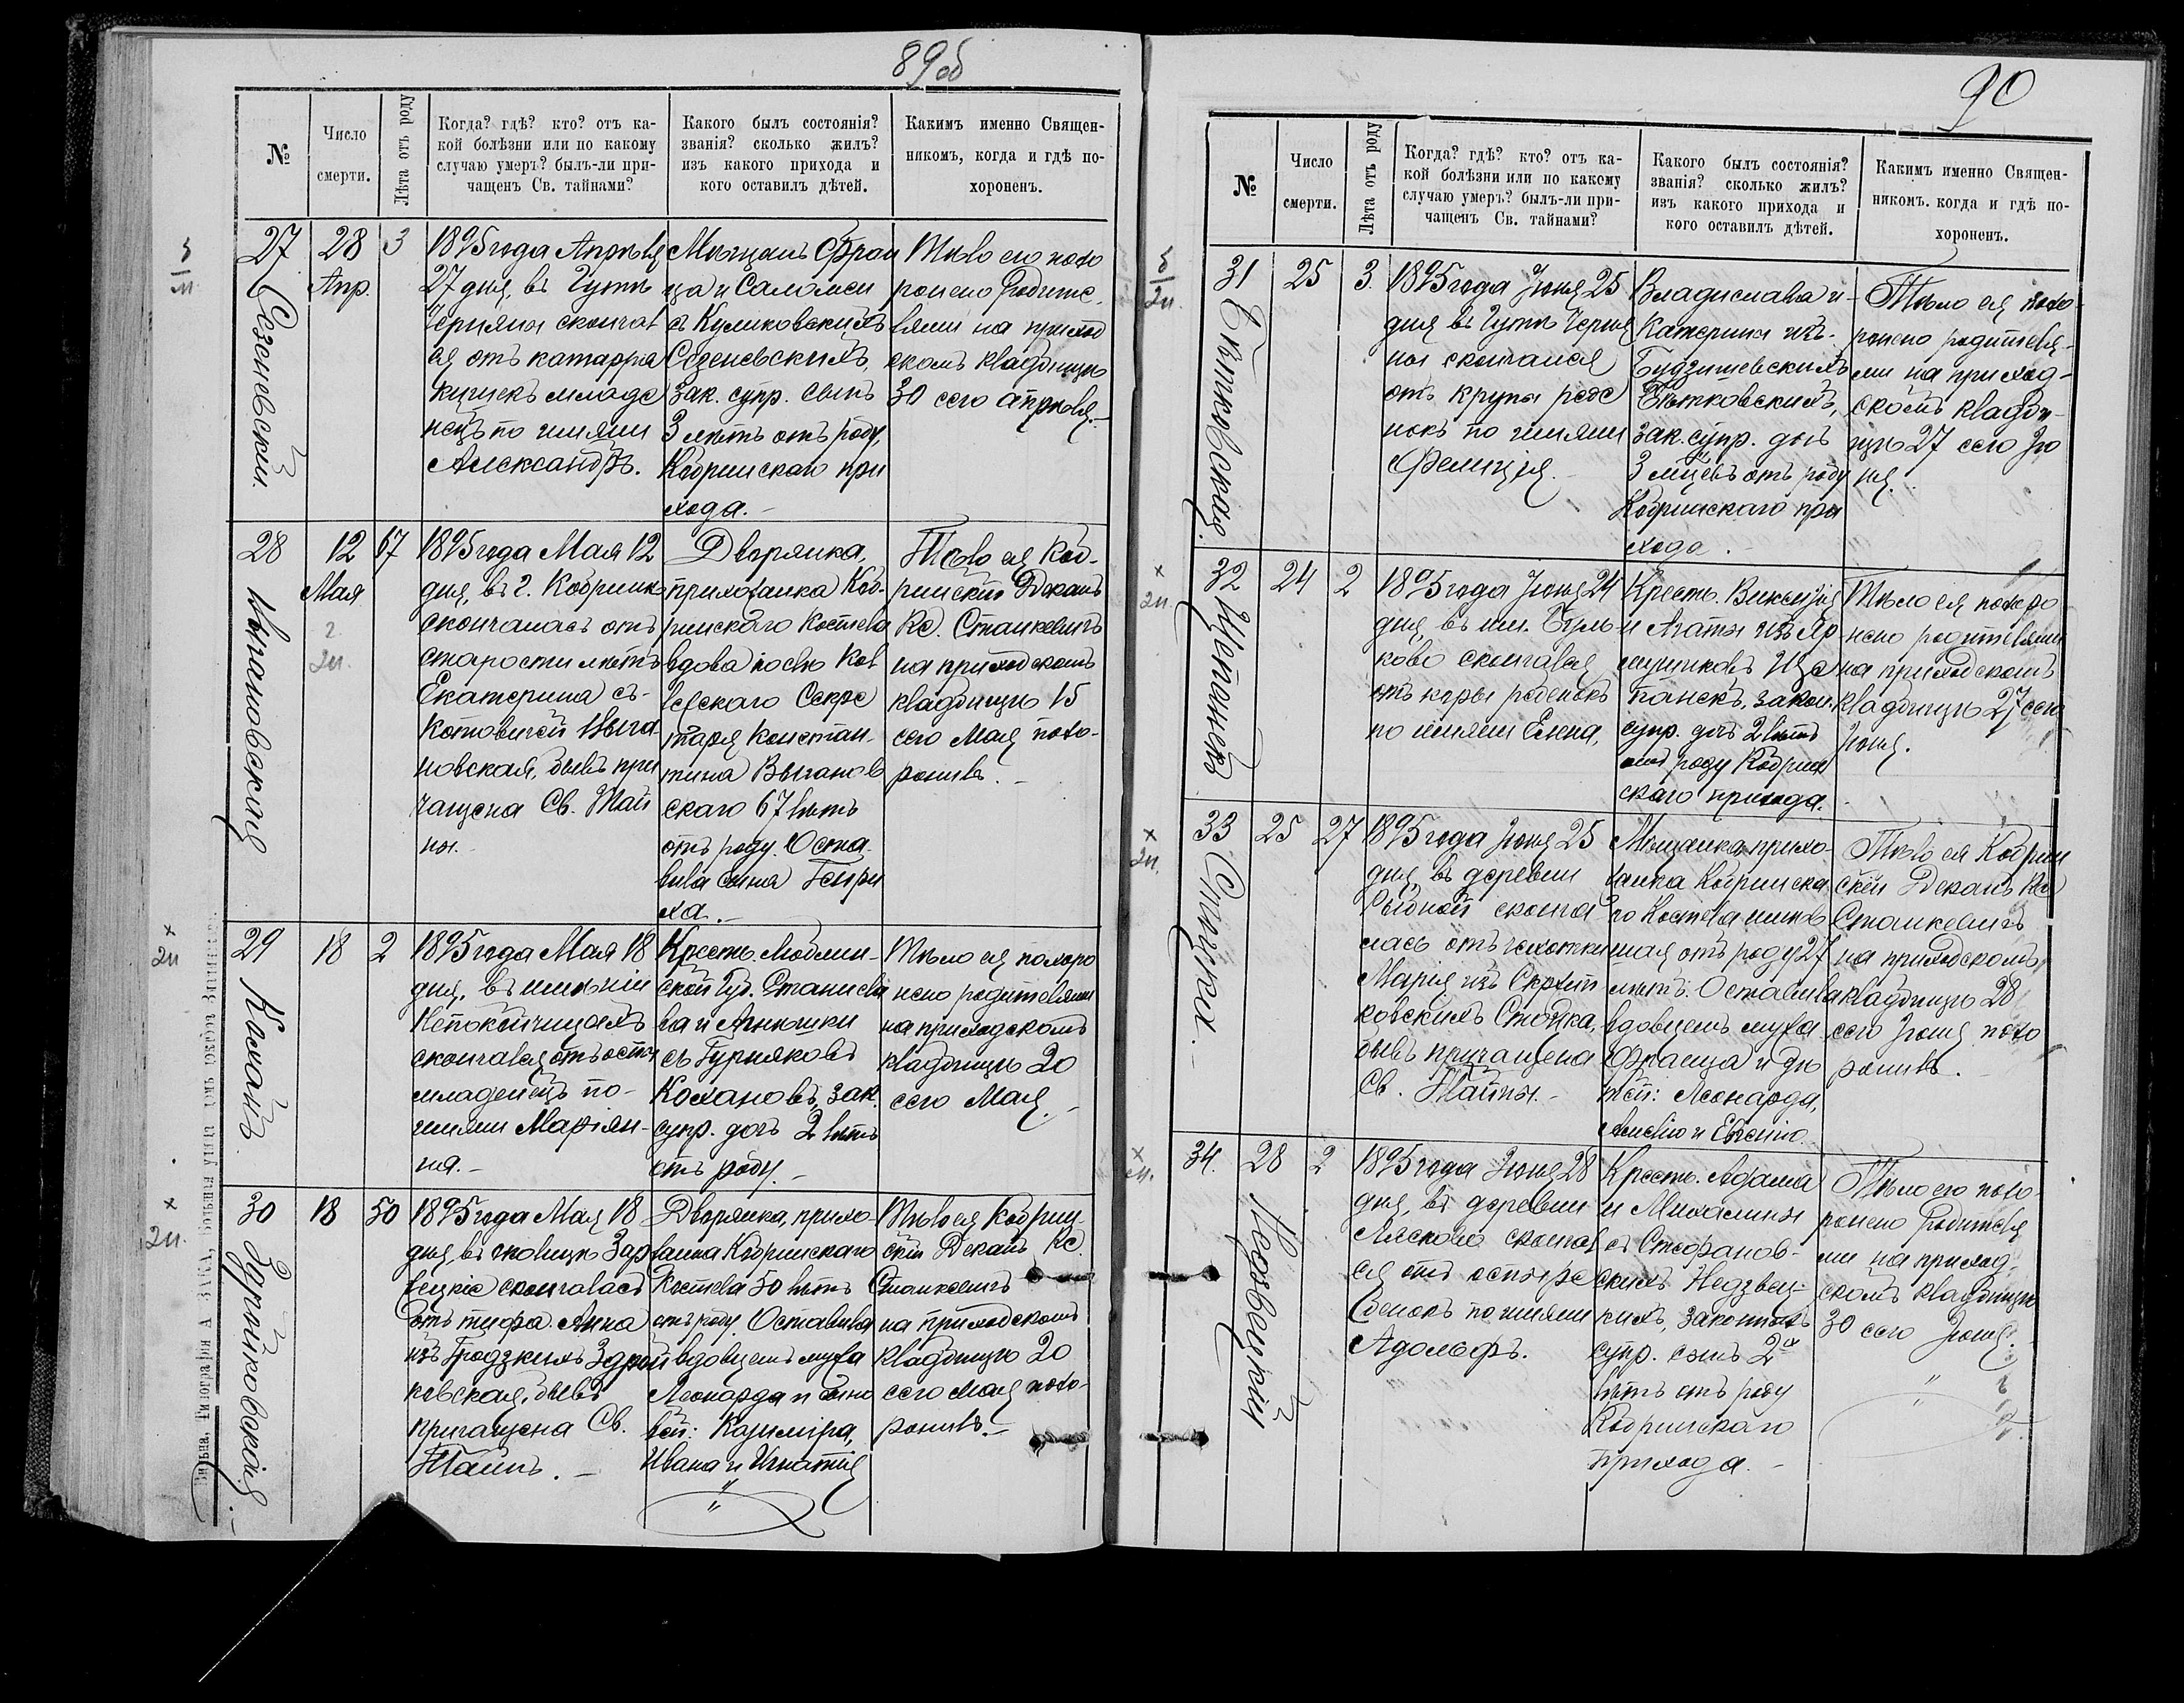 89об
№
Число
смерти.
Лѣта отъ роду
Когда? гдѣ? кто? отъ ка-
кой болѣзни или по какому
случаю умеръ? былъ-ли при-
чащенъ Св. тайнами?
Какого былъ состоянія?
званія? сколько жилъ?
изъ какого прихода и
кого оставилъ дѣтей.
Какимъ именно Священ-
никомъ, когда и гдѣ по-
хороненъ.
27
Сезеневскій.
28
Апр.
3
1895 года Апрѣля
27 дня, въ Гутѣ
Черняны скончал
ся отъ катарра
кишекъ младе
нецъ по имяни
Александръ.
Мѣщанъ Фран
ца и Саломеи
съ Куликовскихъ
Сезеневскихъ,
зак. супр. сынъ
3 лѣтъ отъ роду,
Кобринскаго при
хода.-
Тѣло его похо
ронено родите-
лями на приход
скомъ кладбищѣ
30 сего апрѣля.-
28
Выгановская
12
Мая
67
1895 года Мая 12
дня, въ г. Кобринѣ
скончалась отъ
старости лѣтъ
Екатерина съ-
Котовичей Выга
новская, бывъ при
чащена Св. Тай
ны.-
Дворянка,
прихожанка Коб-
ринскаго костела
вдова послѣ Кол
лескаго Секре
таря Констан-
тина Выганов
скаго 67 лѣтъ
отъ роду. Оста-
вила сына Генри
ха.-
Тѣло ея Коб-
ринскій Деканъ
Кс. Станкевичъ
на приходскомъ
кладбищѣ 15
сего Мая похо-
ронилъ.-
29
Коханъ
18
2
1895 года Мая 18
дня, въ имѣніи
Непокойчицахъ
скончался отъ оспы
младенецъ по-
имяни Маріян-
на.-
Крестъ. Люблин-
ской Губ. Станисла
ва и Агнюшки
съ Гурняковъ
Кохановъ, зак.
супр. дочь 2 лѣтъ
отъ роду.-
Тѣло ея похоро
нено родителями
на приходскомъ
кладбищѣ 20
сего Мая.-
30
Здройковская.-
18
50
1895 года Мая 18
дня, въ околицѣ Зар
скончалась
отъ тифа Анна
изъ Гродзкихъ Здрой
ковская, бывъ
причащена Св.
Тайнъ.-
Дворянка, прихо-
жанка Кобринскаго
Костела 50 лѣтъ
отъ роду. Оставила
вдовцемъ мужа
Леонарда и сыно
вей: Казиміра,
Ивана и Игнатія
Тѣло ея Кобрин-
скій Деканъ Кс.
Станкевичъ
на приходскомъ
кладбищѣ 20
сего Мая похо-
ронилъ.-
90
№
Число
смерти.
Лѣта отъ роду
Когда? гдѣ? кто? отъ ка-
кой болѣзни или по какому
случаю умеръ? былъ-ли при-
чащенъ Св. тайнами?
Какого былъ состоянія?
званія? сколько жилъ?
изъ какого прихода и
кого оставилъ дѣтей.
Какимъ именно Священ-
никомъ. когда и гдѣ по-
хороненъ.
31
Бѣтковская.
25
3.
1895 года Іюня 25
дня въ Гутѣ Черня
ны скончался
отъ крупы ребе
нокъ по имяни
Фелиція.-
Владислава и-
Катерины изъ-
Будзишевскихъ
Бѣтковскихъ,
зак. супр. дочь
3 мѣцевъ отъ роду
Кобринскаго при
хода.-
Тѣло ея похо-
ронено родителя-
ми на приход-
скомъ кладби-
щѣ 27 сего Iю
ня.
32
Щепонекъ
24
2
1895 года Іюня 24
дня, въ им.
ково скончался
отъ коры ребенокъ
по имяни Елена,
Крестъ. Викентія
и Агаты изъ Яр
мушковъ Ще
панекъ, закон.
супр. дочь 2 лѣтъ
отъ роду Кобрин
скаго прихода.
Тѣло ея похоро
нено родителями
на приходскомъ
кладбищѣ 27 сего
Iюня.
33
Стоцкая.-
25
27
1895 года Іюня 25
дня, въ деревни
Рыбной сконча
лась отъ чахотки
Марія изъ Скржип
ковскихъ Стоцка,
бывъ причащена
Св. Тайны.-
Мѣщанка, прихо-
жанка Кобринска
го Костела имѣв
шая отъ роду 27
лѣтъ. Оставила
вдовцемъ мужа
Франца и дѣ
тей: Леонарда,
Амелію и Евгенію.
Тѣло ея Кобрин
скій Деканъ Кс
Станкевичъ
на приходскомъ
кладбищѣ 28
сего Iюня похо
ронилъ.-
34.
Недзвецкій
28
2
1895 года Іюня 28
дня, въ деревни
Лясково скончал
ся отъ оспы ре
бенокъ по имяни
Адольфъ.
Крестъ. Адама
и Михалины
съ Стефанов-
скихъ Недзвец-
кихъ, законныхъ
супр. сынъ 2х
лѣтъ отъ роду
Кобринскаго
прихода.-
Тѣло его похо-
ронено родителя
ми на приход-
скомъ кладбищѣ
30 сего Iюня.